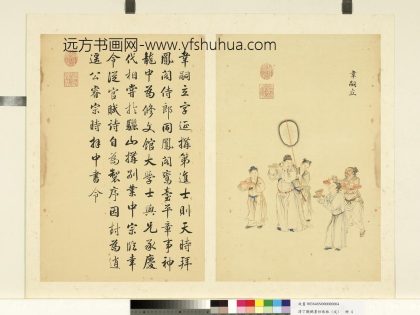 远方书画网-www.yfshuhua.com
韋嗣立
韋嗣立字延構第進士則天時拜
鳳閣侍郎同鳳閣鸞臺平章事神
龍中為修文館大學士與兄承慶
代相嘗於驪山構別業中宗臨幸
令從官賦詩自為製序因封為逍
遥公睿宗時拜中書令